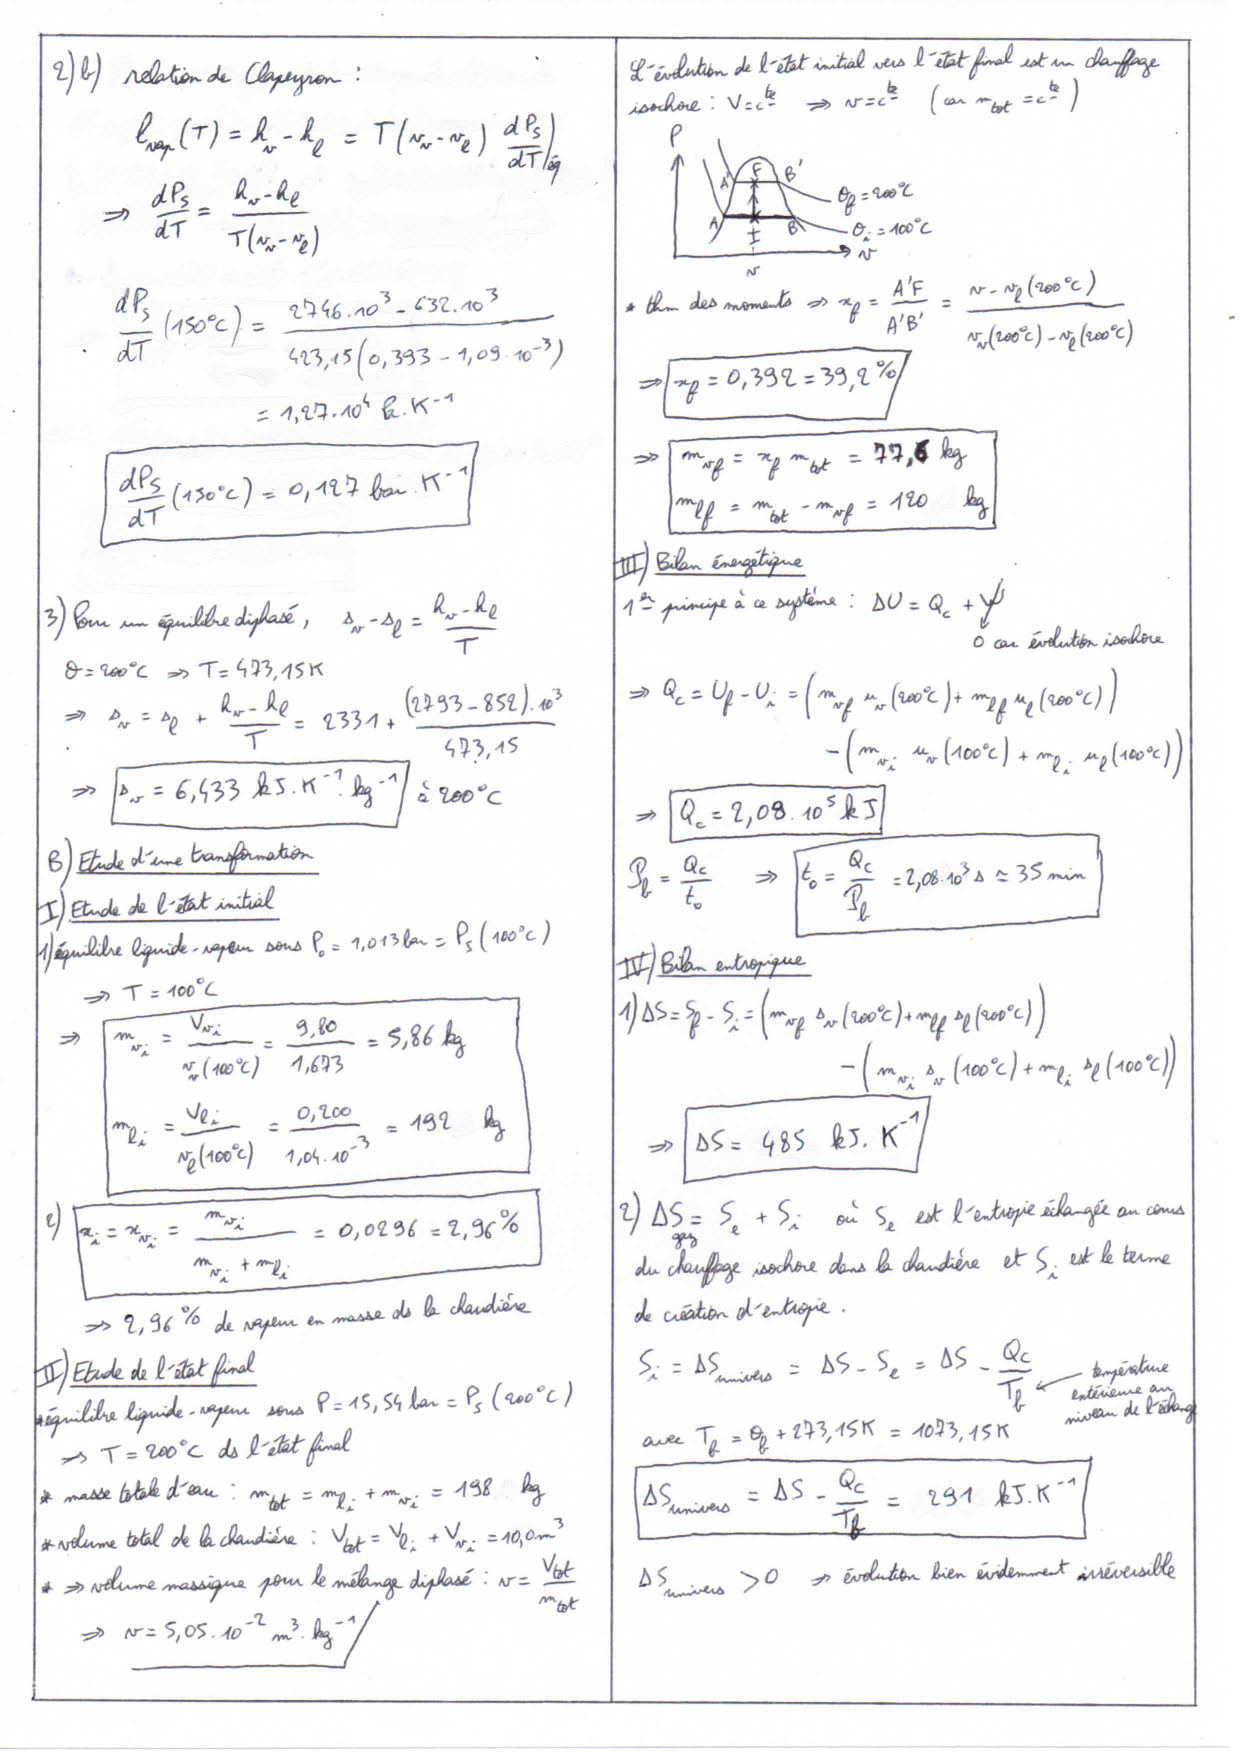 2) b) relation de Clapeyron :
l_vap(T) = h_v - h_l = T(v_v - v_l) dP_s/dT)_éq
⇒ dP_s/dT = (h_v - h_l)/(T(v_v - v_l))
dP_s/dT (150°C) = (2746.10^3 - 632.10^3)/(423,15(0,393 - 1,09.10^-3))
= 1,27.10^4 Pa.K^-1
dP_s/dT (150°C) = 0,127 bar.K^-1
3) Pour un équilibre diphasé, s_v - s_l = (h_v - h_l)/T
θ = 200°C ⇒ T = 473,15K
⇒ s_v = s_l + (h_v - h_l)/T = 2331 + (2793 - 852).10^3/473,15
⇒ s_v = 6,433 kJ.K^-1.kg^-1 à 200°C
B) Etude d'une transformation
I) Etude de l'état initial
1) équilibre liquide-vapeur sous P_0 = 1,013 bar = P_s(100°C)
⇒ T = 100°C
⇒ m_vi = V_vi/v_v(100°C) = 9,80/1,673 = 5,86 kg
m_li = V_li/v_l(100°C) = 0,200/1,04.10^-3 = 192 kg
2) x_i = x_vi = m_vi/(m_vi + m_li) = 0,0296 = 2,96%
⇒ 2,96% de vapeur en masse ds la chaudière
II) Etude de l'état final
* équilibre liquide-vapeur sous P = 15,54 bar = P_s(200°C)
⇒ T = 200°C ds l'état final
* masse totale d'eau : m_tot = m_li + m_vi = 198 kg
* volume total de la chaudière : V_tot = V_li + V_vi = 10,0 m^3
* ⇒ volume massique pour le mélange diphasé : v = V_tot/m_tot
⇒ v = 5,05.10^-2 m^3.kg^-1
L'évolution de l'état initial vers l'état final est un chauffage
isochore : V = c^te ⇒ v = c^te (car m_tot = c^te)
P
A' F B'
θ_f = 200°C
A I B
θ_i = 100°C
v
v
* thm des moments ⇒ x_f = A'F/A'B' = (v - v_l(200°C))/(v_v(200°C) - v_l(200°C))
⇒ x_f = 0,392 = 39,2%
⇒ m_vf = x_f m_tot = 77,6 kg
m_lf = m_tot - m_vf = 120 kg
III) Bilan énergétique
1er principe à ce système : ΔU = Q_c + W
0 car évolution isochore
⇒ Q_c = U_f - U_i = (m_vf u_v(200°C) + m_lf u_l(200°C))
- (m_vi u_v(100°C) + m_li u_l(100°C))
⇒ Q_c = 2,08.10^5 kJ
P_f = Q_c/t_0 ⇒ t_0 = Q_c/P_f = 2,08.10^3 s ≃ 35 min
IV) Bilan entropique
1) ΔS = S_f - S_i = (m_vf s_v(200°C) + m_lf s_l(200°C))
- (m_vi s_v(100°C) + m_li s_l(100°C))
⇒ ΔS = 485 kJ.K^-1
2) ΔS_gaz = S_e + S_i où S_e est l'entropie échangée au cours
du chauffage isochore dans la chaudière et S_i est le terme
de création d'entropie.
S_i = ΔS_univers = ΔS - S_e = ΔS - Q_c/T_f ← température
extérieure au
niveau de l'échange
avec T_f = θ_f + 273,15K = 1073,15K
ΔS_univers = ΔS - Q_c/T_f = 291 kJ.K^-1
ΔS_univers > 0 ⇒ évolution bien évidemment irréversible